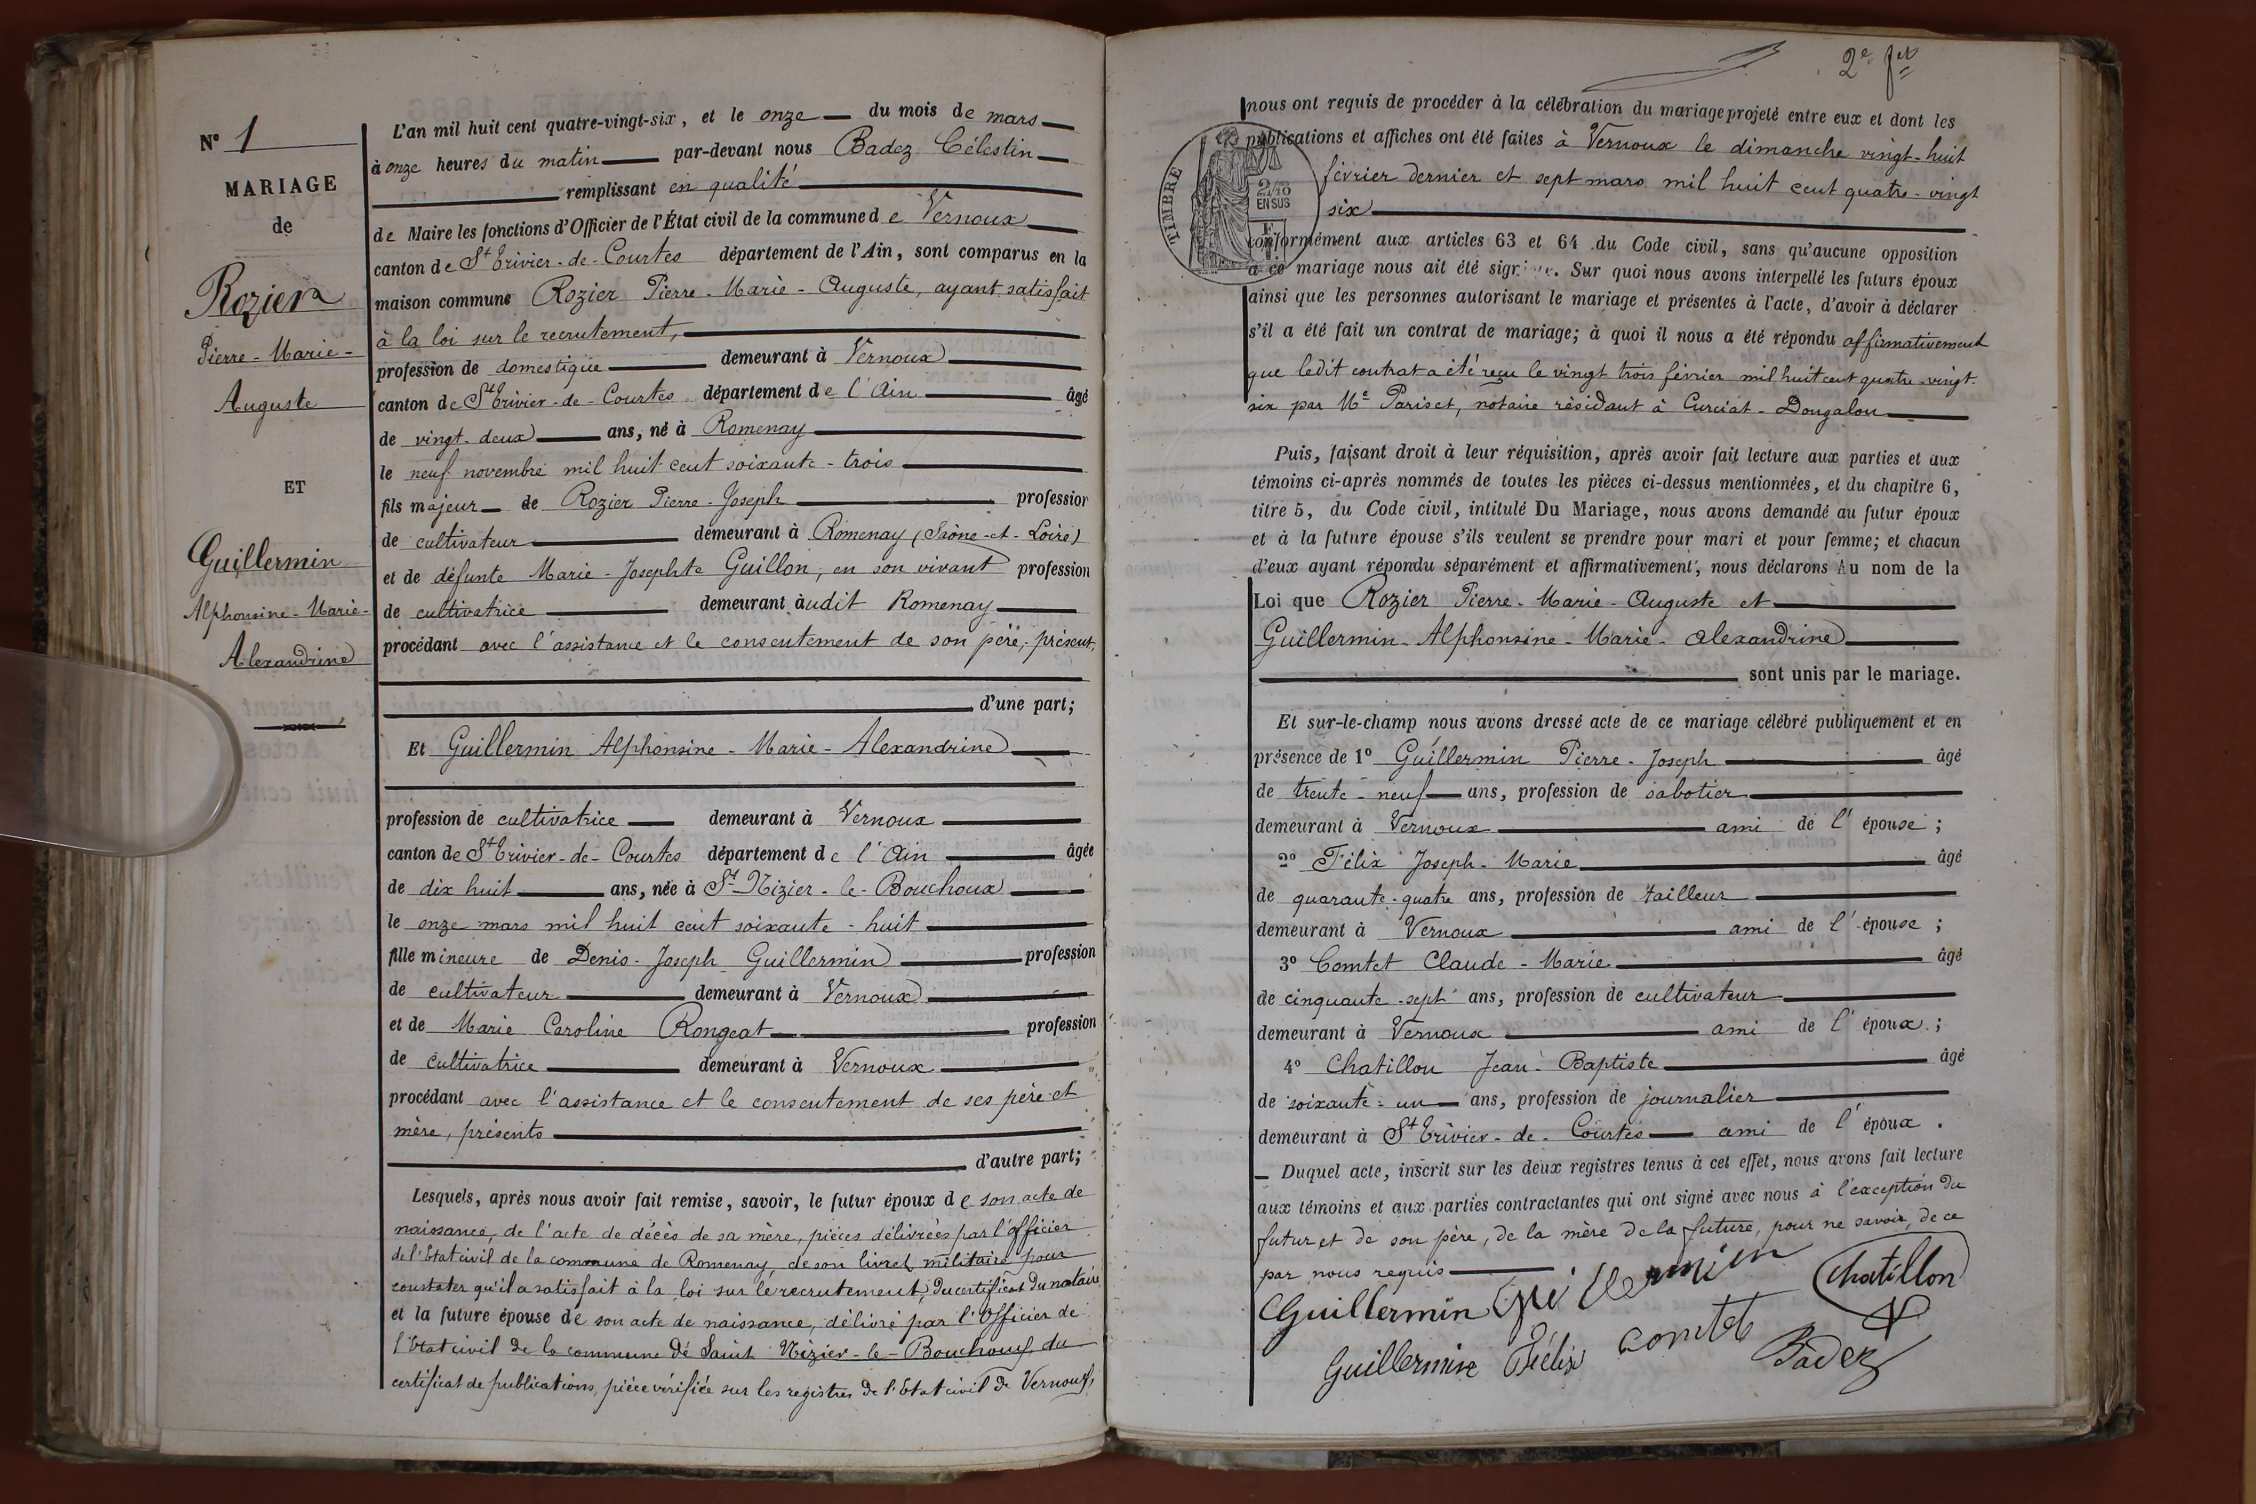 N° 1
MARIAGE
de
Rozier
Pierre-Marie-
Auguste
ET
Guillermin
Alphonsine-Marie-
Alexandrine
L'an mil huit cent quatre-vingt-six, et le onze du mois de mars
à onze heures du matin par-devant nous Badez Célestin
remplissant en qualité
de Maire les fonctions d'Officier de l'État civil de la commune de Vernoux
canton de St Trivier-de-Courtes département de l'Ain, sont comparus en la
maison commune Rozier Pierre-Marie-Auguste, ayant satisfait
à la loi sur le recrutement,
profession de domestique demeurant à Vernoux
canton de St Trivier-de-Courtes département de l'Ain âgé
de vingt-deux ans, né à Romenay
le neuf novembre mil huit cent soixante-trois
fils majeur de Rozier Pierre-Joseph profession
de cultivateur demeurant à Romenay (Saône-et-Loire)
et de défunte Marie-Josephte Guillon, en son vivant profession
de cultivatrice demeurant àudit Romenay
procédant avec l'assistance et le consentement de son père, présent,
d'une part;
Et Guillermin Alphonsine-Marie-Alexandrine
profession de cultivatrice demeurant à Vernoux
canton de St Trivier-de-Courtes département de l'Ain âgée
de dix huit ans, née à St-Nizier-le-Bouchoux
le onze mars mil huit cent soixante-huit
fille mineure de Denis-Joseph Guillermin profession
de cultivateur demeurant à Vernoux
et de Marie Caroline Rongeat profession
de cultivatrice demeurant à Vernoux
procédant avec l'assistance et le consentement de ses père et
mère, présents
d'autre part;
Lesquels, après nous avoir fait remise, savoir, le futur époux de son acte de
naissance, de l'acte de décès de sa mère, pièces délivrées par l'officier
de l'Etat civil de la commune de Romenay, de son livret militaire pour
constater qu'il a satisfait à la loi sur le recrutement, du certificat du notaire
et la future épouse de son acte de naissance, délivré par l'Officier de
l'Etat civil de la commune de Saint Nizier-le-Bouchoux, du
certificat de publications, pièce vérifiée sur les registres de l'Etat civil de Vernoux,
2e fet
nous ont requis de procéder à la célébration du mariage projeté entre eux et dont les
publications et affiches ont été faites à Vernoux le dimanche vingt-huit
février dernier et sept mars mil huit cent quatre-vingt
six
TIMBRE
2/10
EN SUS
conformément aux articles 63 et 64 du Code civil, sans qu'aucune opposition
à ce mariage nous ait été signifiée. Sur quoi nous avons interpellé les futurs époux
ainsi que les personnes autorisant le mariage et présentes à l'acte, d'avoir à déclarer
s'il a été fait un contrat de mariage; à quoi il nous a été répondu affirmativement
que ledit contrat a été reçu le vingt trois février mil huit cent quatre-vingt-
six par Me Pariset, notaire résidant à Curciat-Dongalon
Puis, faisant droit à leur réquisition, après avoir fait lecture aux parties et aux
témoins ci-après nommés de toutes les pièces ci-dessus mentionnées, et du chapitre 6,
titre 5, du Code civil, intitulé Du Mariage, nous avons demandé au futur époux
et à la future épouse s'ils veulent se prendre pour mari et pour femme; et chacun
d'eux ayant répondu séparément et affirmativement, nous déclarons Au nom de la
Loi que Rozier Pierre-Marie-Auguste et
Guillermin-Alphonsine-Marie-Alexandrine
sont unis par le mariage.
Et sur-le-champ nous avons dressé acte de ce mariage célébré publiquement et en
présence de 1° Guillermin Pierre-Joseph âgé
de trente-neuf ans, profession de sabotier
demeurant à Vernoux ami de l'épouse;
2° Félix Joseph-Marie âgé
de quarante-quatre ans, profession de tailleur
demeurant à Vernoux ami de l'épouse;
3° Comtet Claude-Marie âgé
de cinquante-sept ans, profession de cultivateur
demeurant à Vernoux ami de l'époux;
4° Chatillon Jean-Baptiste âgé
de soixante-un ans, profession de journalier
demeurant à St Trivier-de-Courtes ami de l'époux.
Duquel acte, inscrit sur les deux registres tenus à cet effet, nous avons fait lecture
aux témoins et aux parties contractantes qui ont signé avec nous à l'exception du
futur et de son père, de la mère de la future, pour ne savoir, de ce
par nous requis
Guillermin Guillermin Chatillon
Guillermin Félix Comtet Badez